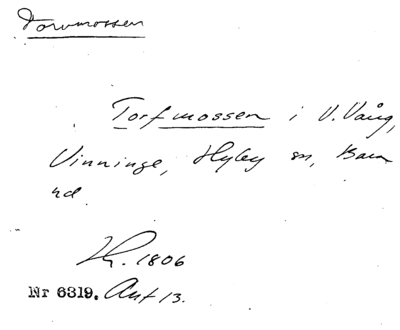 Torvmossen
Torfmossen i V. Vång,
Vinninge, Hyby sn, Bara
hd
1806
Nr 6319. Akt 13.